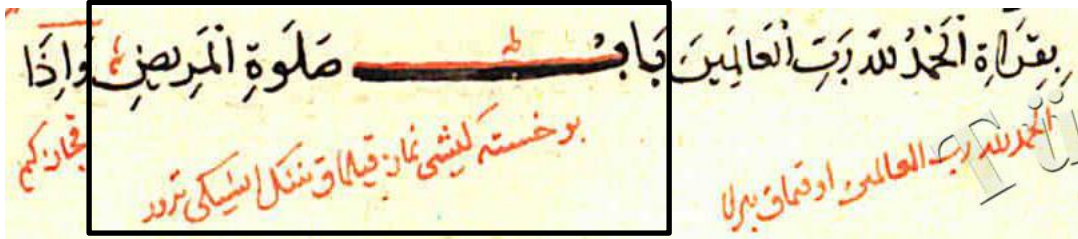 بِقِرَاةِ اَلْحَمْدُ للهِ رَبِّ الْعَالَمِينَ بَابُ صَلَوةِ الْمَرِيضِ وَاِذَا
الحمد لله رب العالمين اوقماق بيرلا
بو خسته كيشى نمازن قيلماق ننكل ايتيكى ترور
قچان كيم